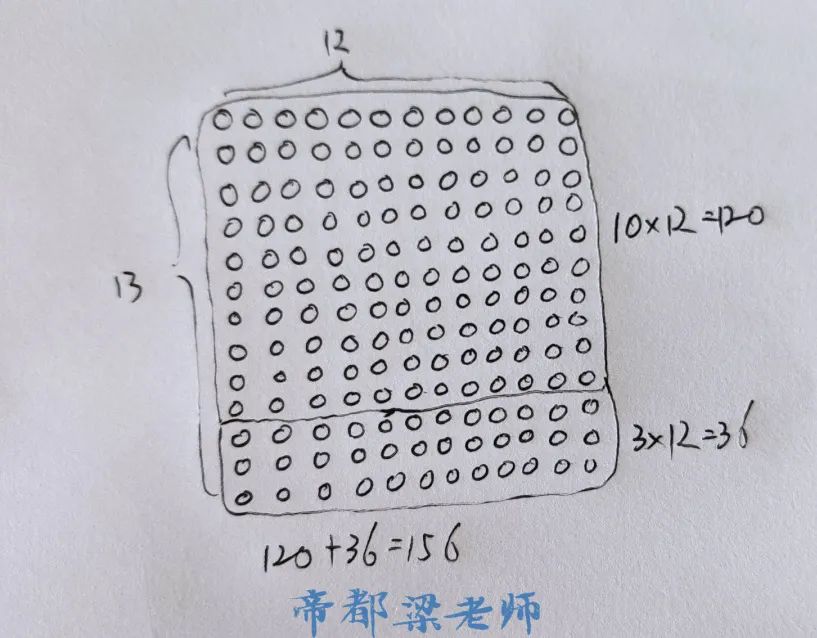 12
13
10×12=120
3×12=36
120+36=156
帝都梁老师